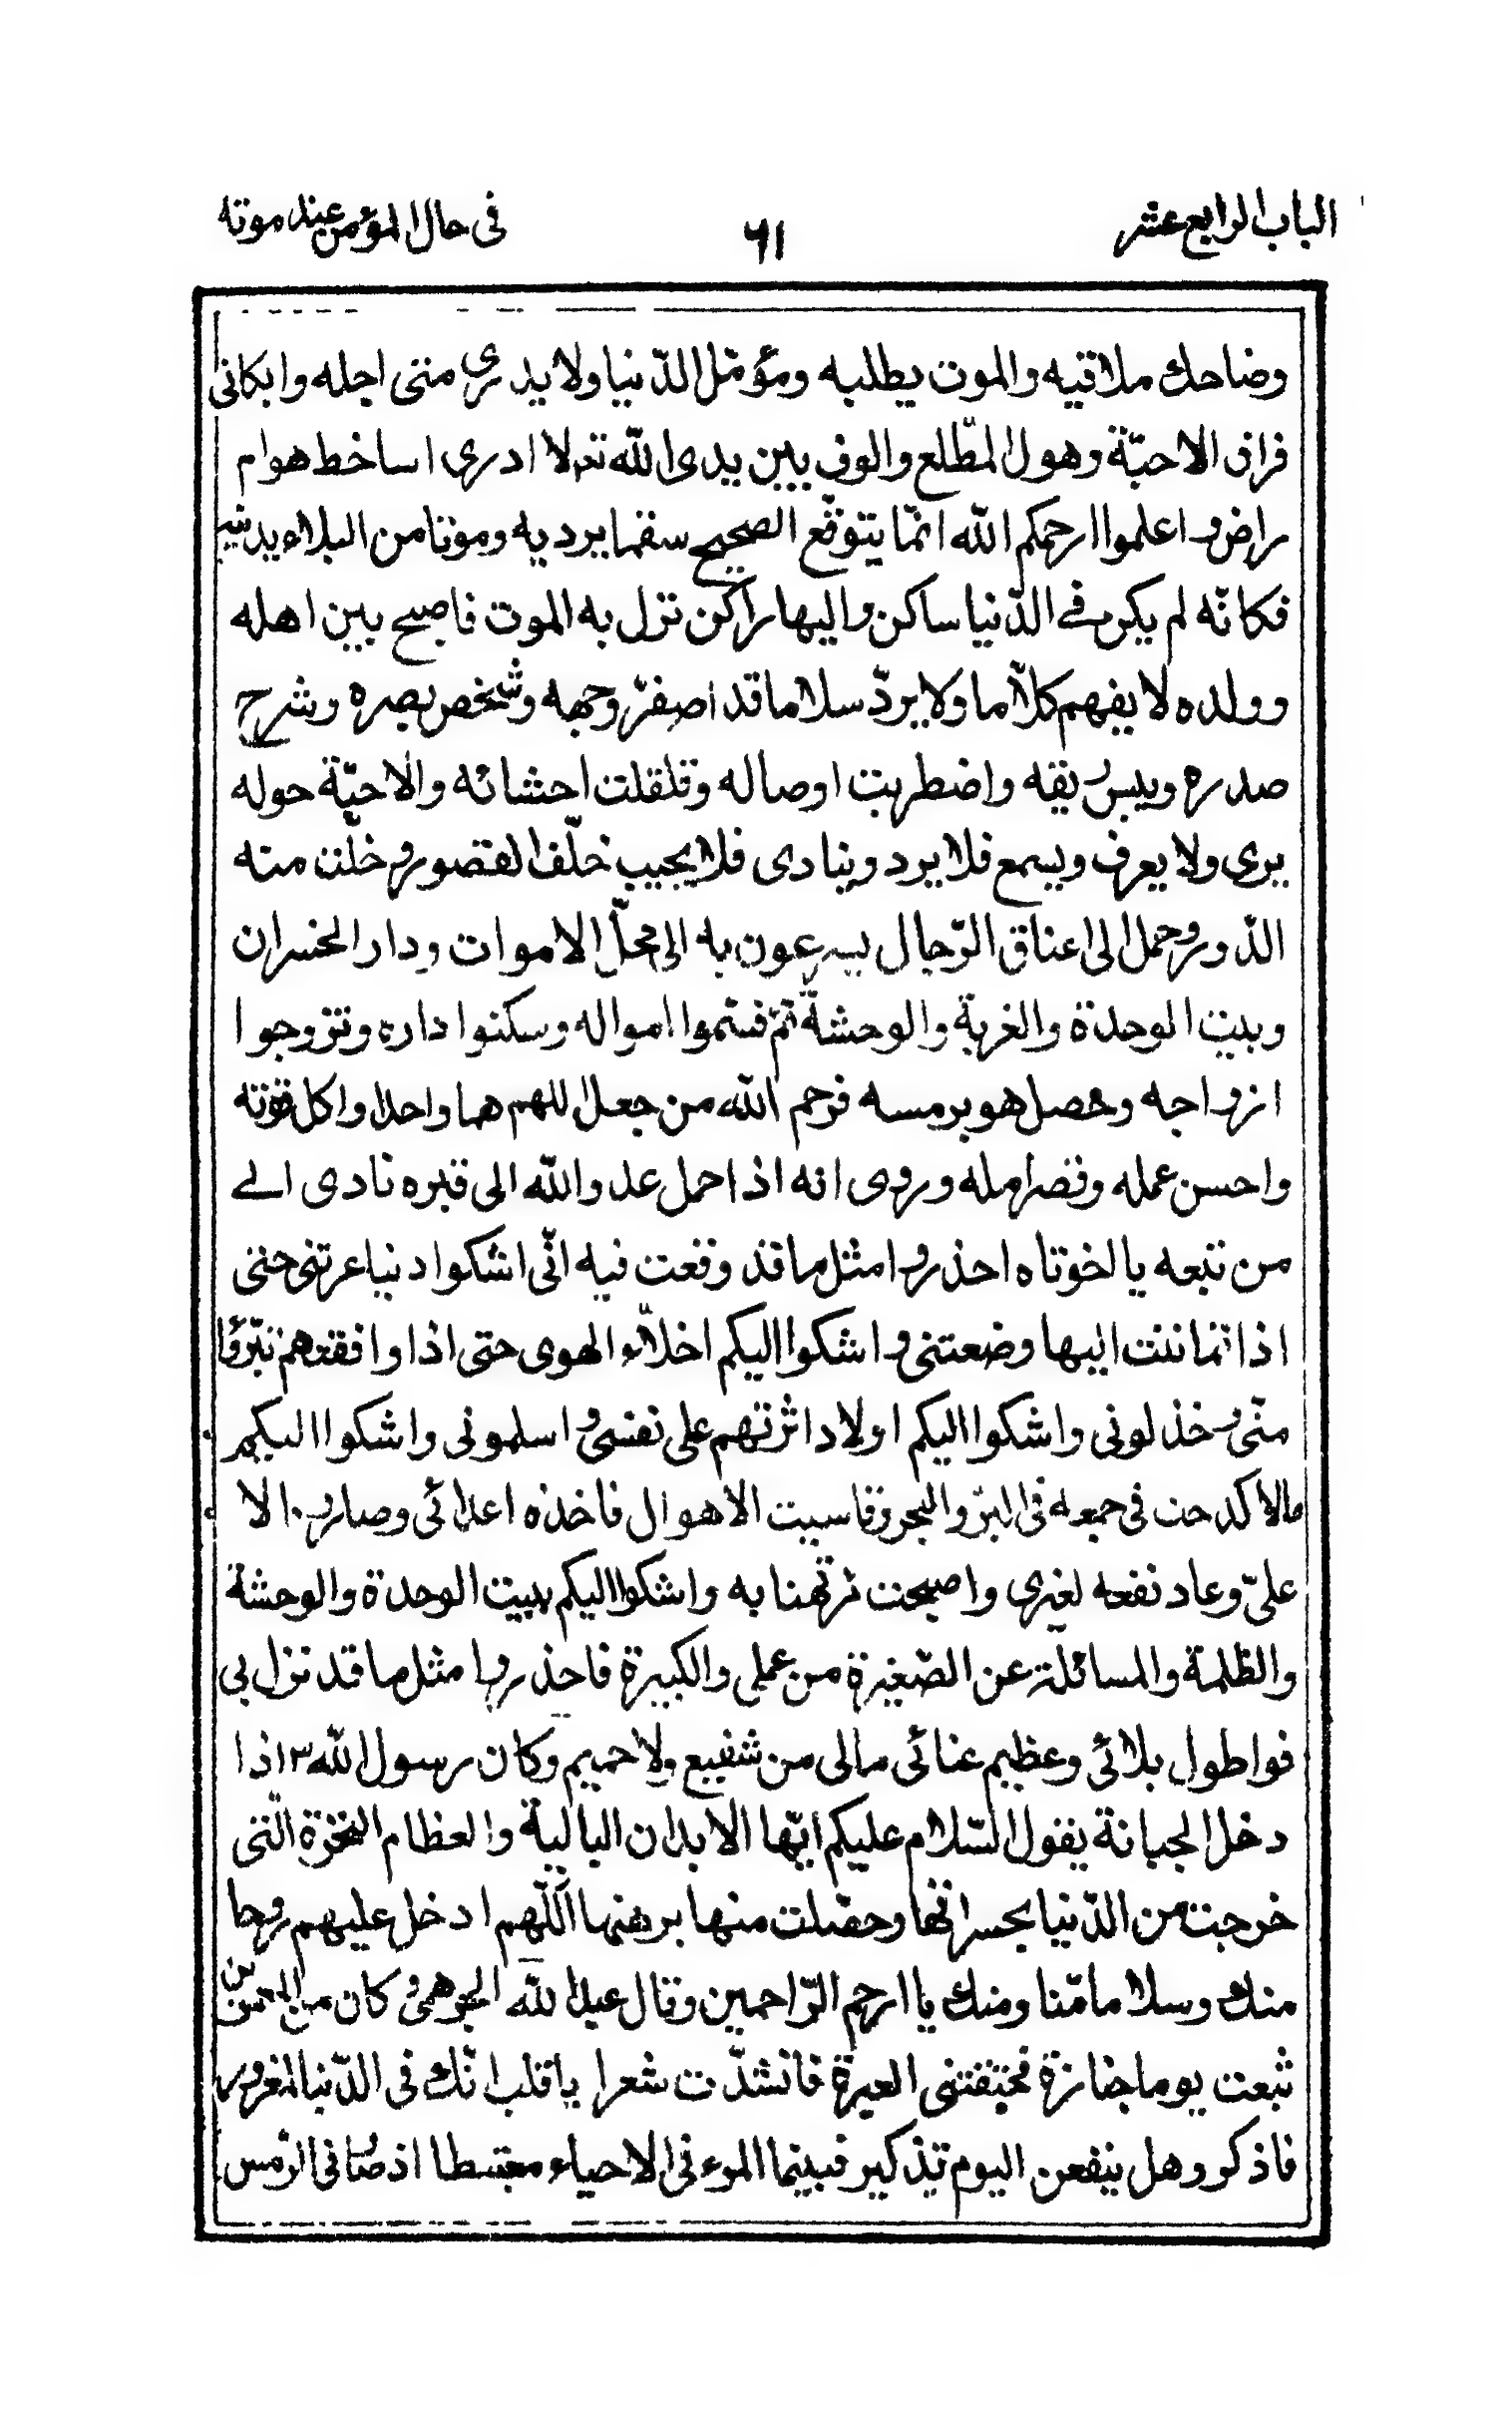 الباب الرابع عشر
٦١
فى حال المؤمن عند موته
وضاحك ملاقيه والموت يطلبه ومؤمّل الدّنيا ولا يدرى متى اجله وابكانى
فراق الاحبّة وهول المطّلع والوقوف بين يدى الله تع لا ادرى اساخط هو ام
راض و اعلموا ارحمكم الله انّما يتوقّع الصحيح سقما يرديه وموتا من البلاء يدنيه
فكانّه لم يكن فى الدّنيا ساكن واليها راكن نزل به الموت فاصبح بين اهله
وولده لا يفهم كلاما ولا يردّ سلاما قد اصفرّ وجهه وشخص بصره وشرح
صدره ويبس ريقه واضطربت اوصاله وتقلقلت احشائه والاحبّة حوله
يرى ولا يعرف ويسمع فلا يرد وينادى فلا يجيب خلّف القصور وخلت منه
الدّور وحمل الى اعناق الرّجال يسرعون به الى محلّ الاموات ودار الخسران
وبيت الوحدة والغربة والوحشة ثمّ قسّموا امواله وسكنوا داره وتزوجوا
ازواجه وحصل هو برمسه فرحم الله من جعل اللهم هما واحدا واكل قوته
واحسن عمله وقصر امله وروى انه اذا حمل عدو الله الى قبره نادى الى
من تبعه يا اخوتاه احذروا مثل ما قد وقعت فيه انّى اشكوا دنيا غرتنى حتى
اذا اطماننت اليها وضعتنى و اشكوا اليكم اخلاّء الهوى حتى اذا وافقتهم تبرّؤا
منّى وخذلونى واشكوا اليكم اولادا اثرتهم على نفسى و اسلمونى واشكوا اليكم
مالا كدحت فى جمعه فى البرّ والبحر وقاسيت الاهوال فاخذه اعدائى وصار وبالا
علىّ وعاد نفعه لغيرى واصبحت مرتهنا به واشكوا اليكم بيت الوحدة والوحشة
والظلمة والمسائلة عن الصّغيرة من عملى والكبيرة فاحذروا مثل ما قد نزل بى
فواطول بلائى وعظيم عنائى مالى من شفيع ولا حميم وكان رسول الله ص اذا
دخل الجبانة يقول السّلام عليكم ايّها الابدان البالية والعظام النخرة الّتى
خرجت من الدّنيا بحسراتها وحصلت منها برهنها اللّهم ادخل عليهم روحا
منك وسلاما منّا ومنك يا ارحم الرّاحمين وقال عبد الله الجرهمى و كان من المعمرين
تبعت يوما جنازة فخنقتنى العبرة فانشدّت شعرا يا قلب انّك فى الدّنيا لمغرور
فاذكر وهل ينفعن اليوم تذكير فبينما المرء فى الاحياء مغتبطا اذ صار فى الرّمس